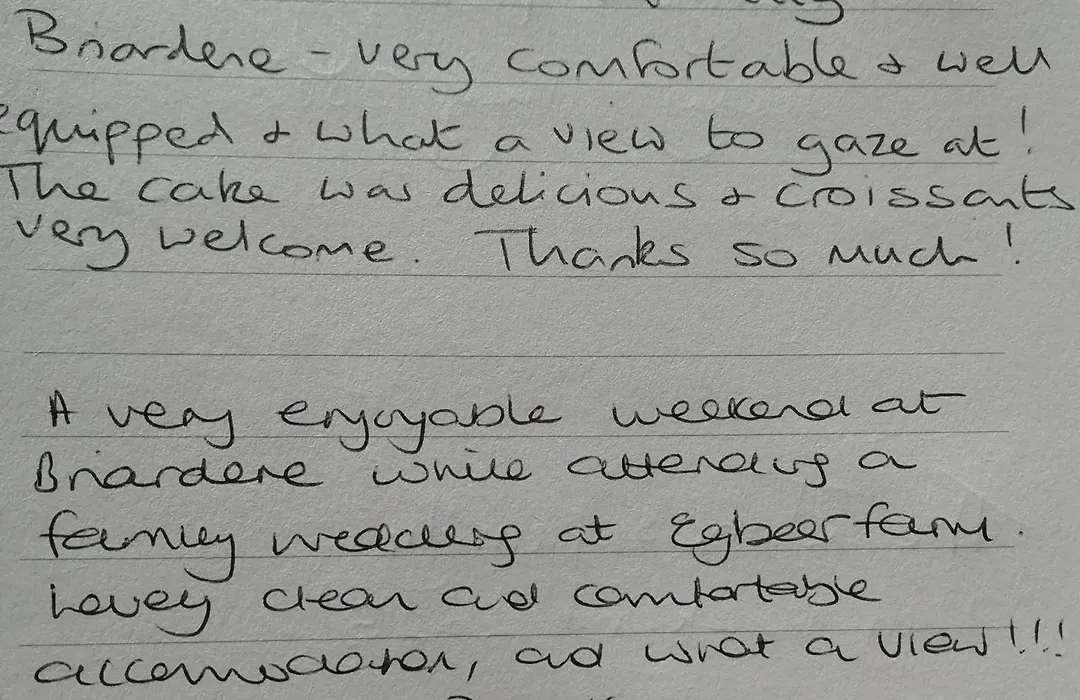 Briardene - very comfortable & well
equipped & what a view to gaze at!
The cake was delicious & croissants
very welcome. Thanks so much!
A very enjoyable weekend at
Briardene while attending a
family wedding at Egbeer farm.
Lovely clean and comfortable
accomodation, and what a view!!!